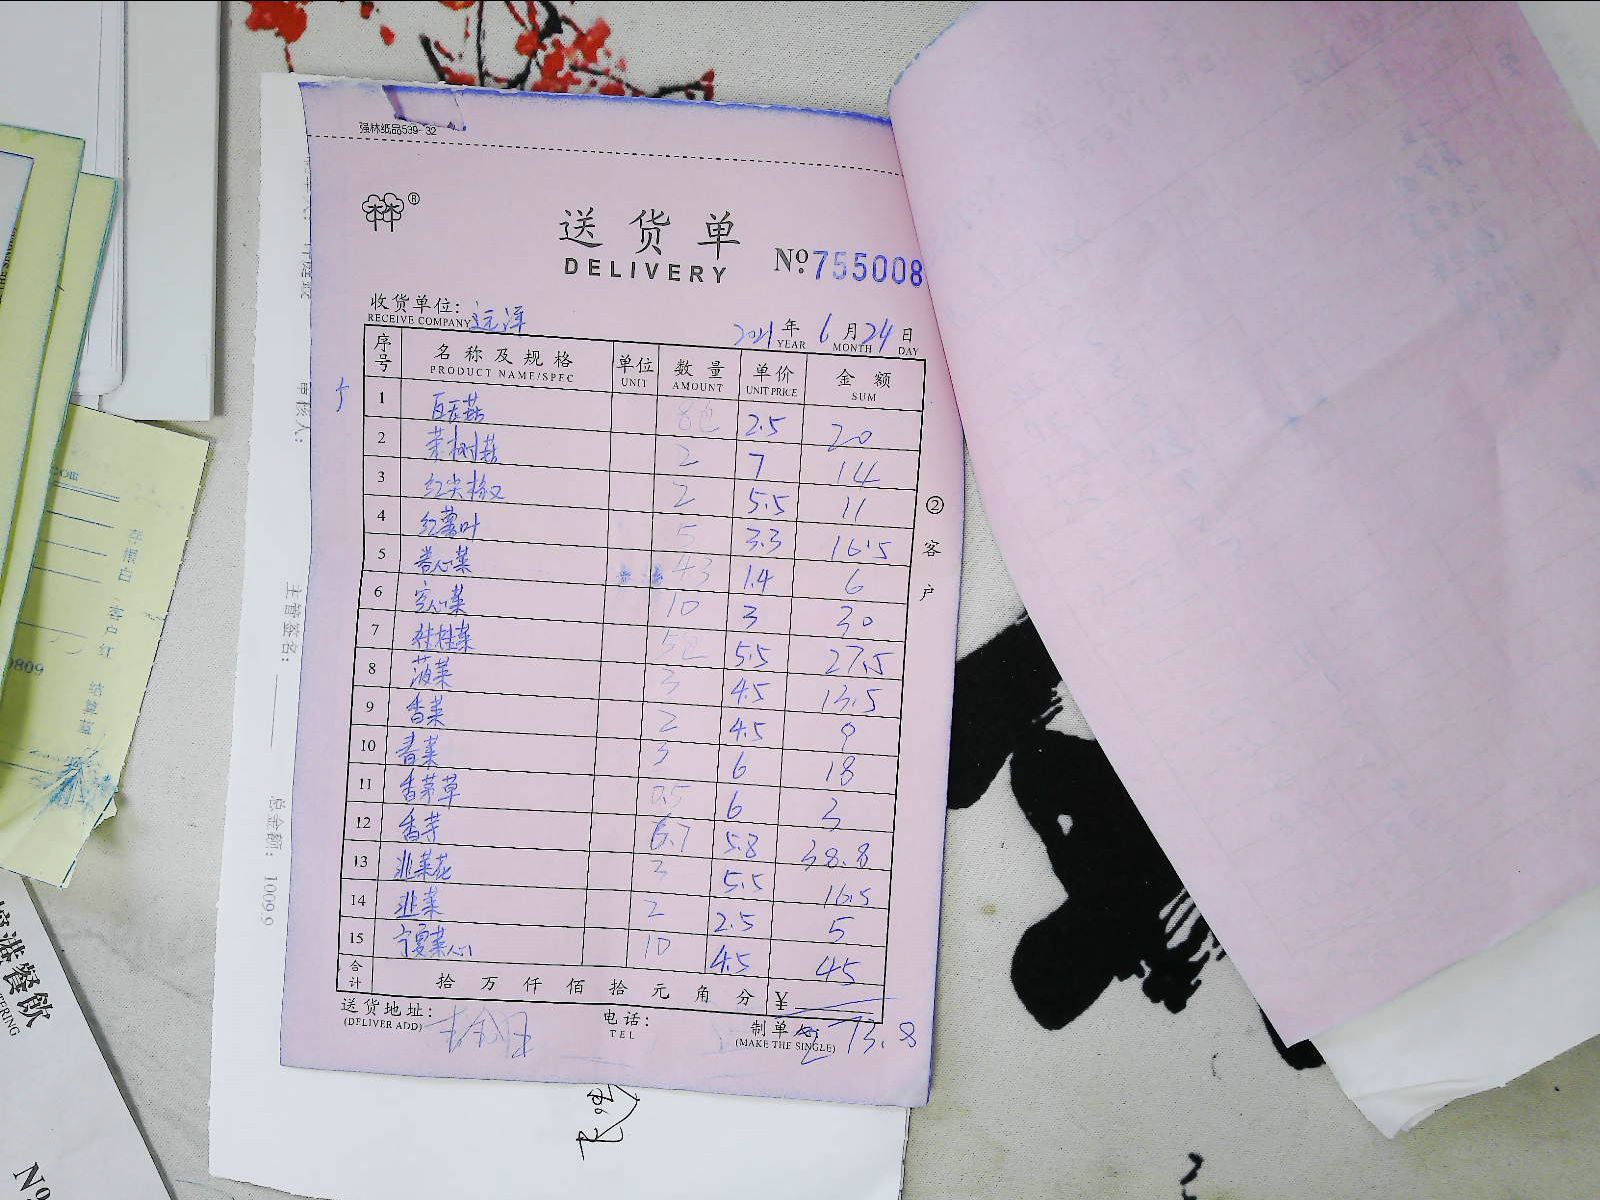 强林纸品539-32
送货单
DELIVERY
№ 755008
收货单位: 远洋
RECEIVE COMPANY
2021 年 6 月 24 日
YEAR MONTH DAY
序号 名称及规格 单位 数量 单价 金额
PRODUCT NAME/SPEC UNIT AMOUNT UNIT PRICE SUM
1 白玉菇 8包 2.5 20
2 茶树菇 2 7 14
3 红尖椒 2 5.5 11
4 红薯叶 5 3.3 16.5
5 卷心菜 43 1.4 6
6 空心菜 10 3 30
7 娃娃菜 5包 5.5 27.5
8 菠菜 3 4.5 13.5
9 香菜 2 4.5 9
10 春菜 3 6 18
11 香茅草 0.5 6 3
12 香芋 6.7 5.8 38.8
13 韭菜花 3 5.5 16.5
14 韭菜 2 2.5 5
15 宁夏菜心 10 4.5 45
合计 拾 万 仟 佰 拾 元 角 分 ¥
273.8
送货地址: 电话: 制单人
(DELIVER ADD) TEL (MAKE THE SINGLE)
②客户
审核人:
主管签名:
总金额: 1009.9
0809
结算联
餐飲
№